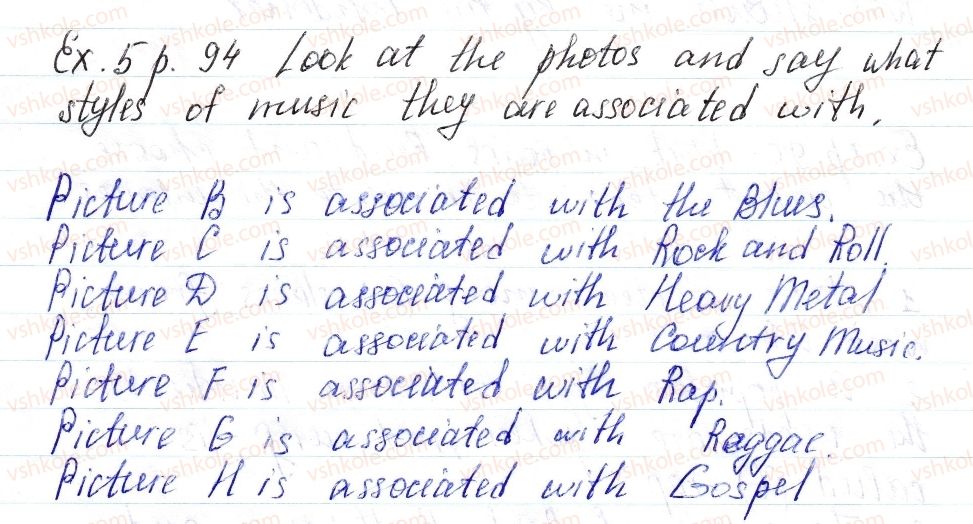 Ex. 5 p. 94 Look at the photos and say what
styles of music they are associated with.
Picture B is associated with the Blues.
Picture C is associated with Rock and Roll.
Picture D is associated with Heavy Metal
Picture E is associated with Country Music.
Picture F is associated with Rap.
Picture G is associated with Raggae.
Picture H is associated with Gospel